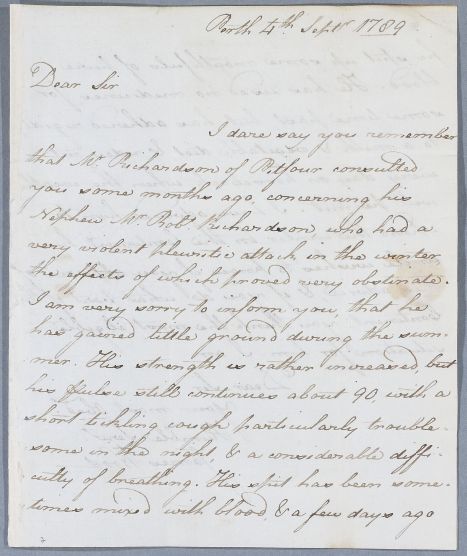 Perth 4th Septr 1789
Dear Sir
I dare say you remember
that Mr Richardson of Pitfour consulted
you some months ago, concerning his
Nephew Mr Robt Richardson, who had a
very violent pleuritic attack in the winter
the effects of which proved very obstinate.
I am very sorry to inform you, that he
has gained little ground during the sum-
mer. His strength is rather increased, but
his pulse still continues about 90, with a
short tickling cough particularly trouble-
some in the night, & a considerable diffi-
culty of breathing. His spit has been some-
times mixed with blood, & a few days ago